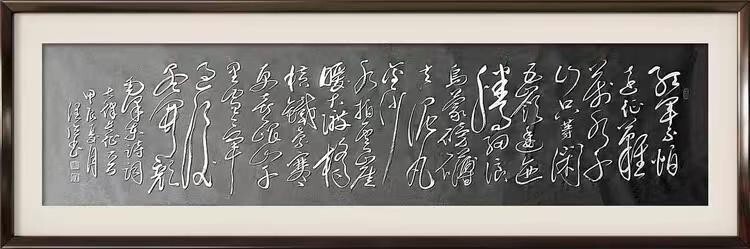 紅軍不怕
遠征難
萬水千
山只等閑
五嶺逶迤
騰細浪
烏蒙磅礴
走泥丸
金沙
水拍雲崖
暖大渡橋
横鐵索寒
更喜岷山千
里雪三軍
過後
盡開顔
毛澤東詩詞
七律長征一首
甲辰夏月